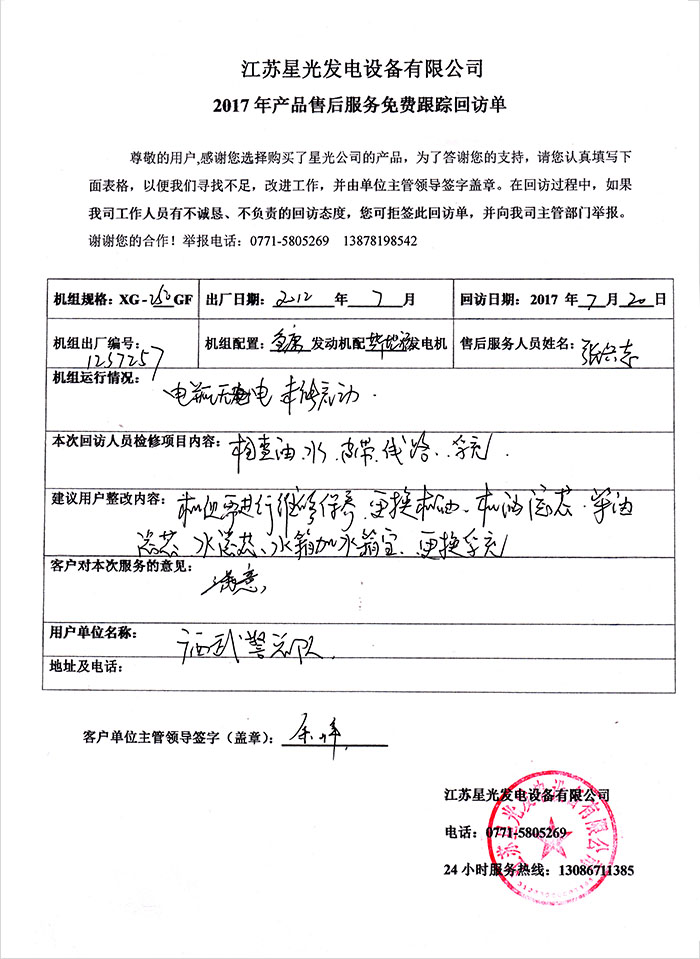 江苏星光发电设备有限公司
2017 年产品售后服务免费跟踪回访单
尊敬的用户,感谢您选择购买了星光公司的产品，为了答谢您的支持，请您认真填写下
面表格，以便我们寻找不足，改进工作，并由单位主管领导签字盖章。在回访过程中，如果
我司工作人员有不诚恳、不负责的回访态度，您可拒签此回访单，并向我司主管部门举报。
谢谢您的合作！举报电话：0771-5805269 13878198542
机组规格：XG -250 GF 出厂日期：2012 年 7 月 回访日期：2017 年 7 月 20 日
机组出厂编号： 机组配置： 发动机配 发电机 售后服务人员姓名：
1257257
机组运行情况：
电瓶无电
本次回访人员检修项目内容：
检查油、水、皮带、线路、浮充.
建议用户整改内容：机组需进行维修保养、更换机油、机油滤芯、柴油
滤芯、水滤芯、水箱加水箱宝、更换浮充
客户对本次服务的意见：
满意.
用户单位名称：
广西武警总队.
地址及电话：
客户单位主管领导签字（盖章）：
江苏星光发电设备有限公司
电话：0771-5805269
24 小时服务热线：13086711385
江苏星光发电设备有限公司